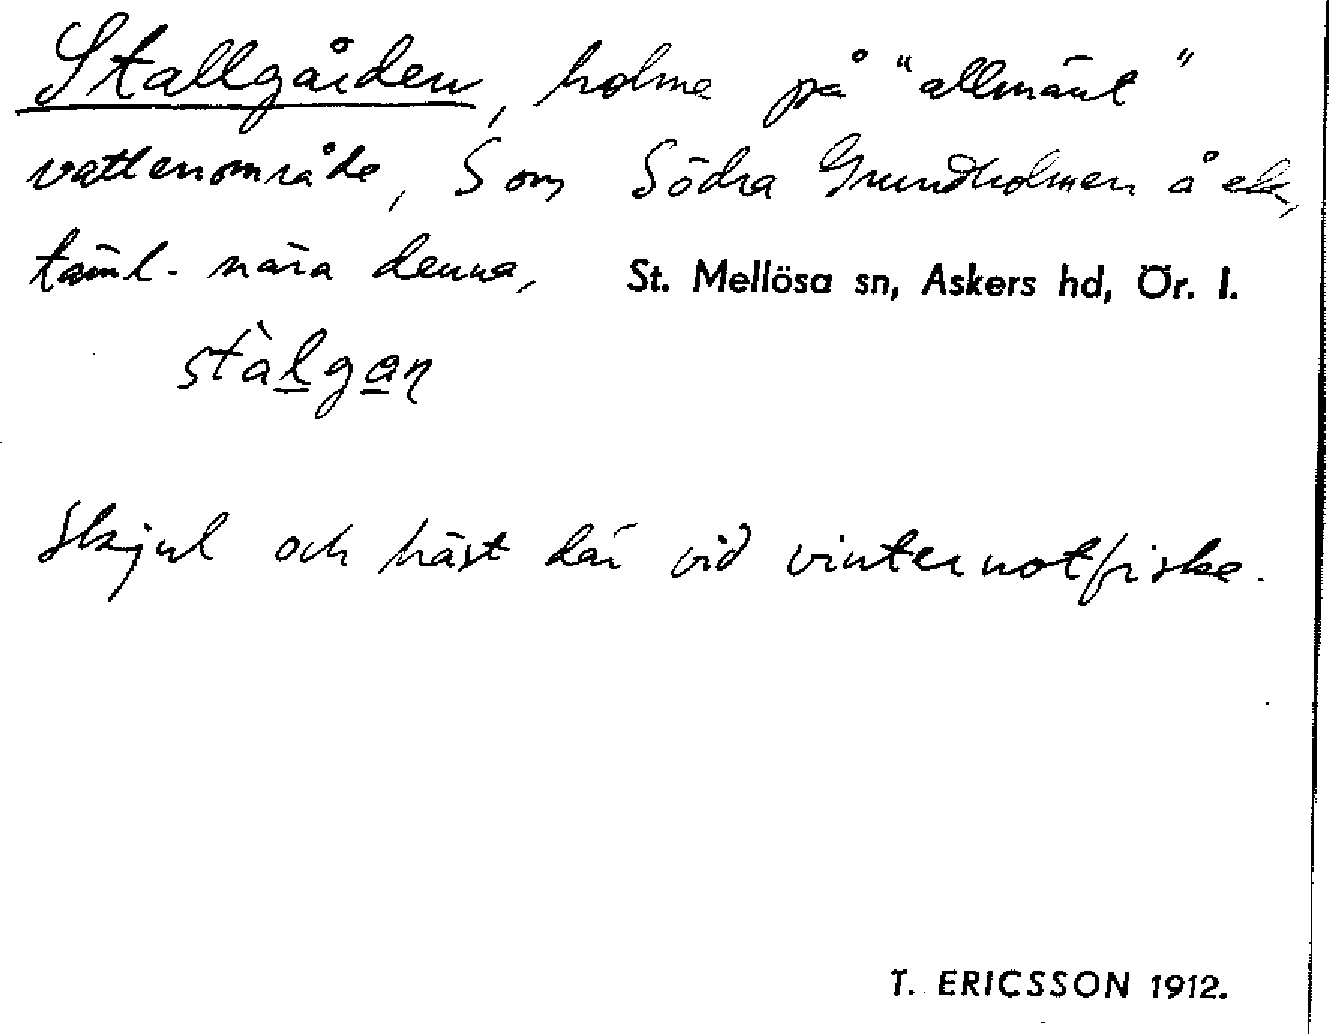 Stallgården, holme på "allmänt"
vattenområde, S om Södra Grundholmen å ek,
täml. nära denna, St. Mellösa sn, Askers hd, Ör. l.
stàlgan
Skjul och häst där vid vinternotfiske.
T. ERICSSON 1912.